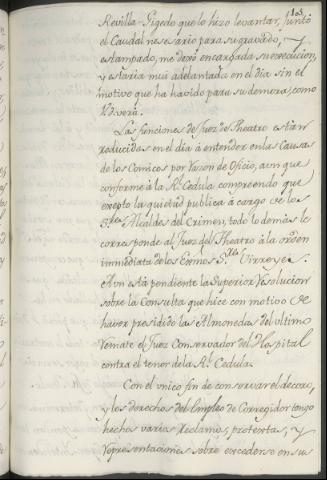 103.
Revilla-Gigedo que lo hizo levantar, juntó
el Caudal nesesario para su gravado, y
estampado, me dexó encargada su execucion,
y estaria mui adelantada en el dia sin el
motivo que ha havido para su demora, como
V.E. verá.
Las funciones de Juez de Theatro estàn
reducidas en el dia à entender en las Causas
de los Comicos por razon de Oficio, aun que
conforme à la Rl. Cedula comprendo que
exepto la quietud publica à cargo de los
S.res Alcaldes del Crimen, todo lo demàs le
corresponde al Juez del Theatro à la orden
immediata de los Exmos. S.res Virreyes.
Aun está pendiente la Superior Resolucion
sobre la Consulta que hice con motivo de
haver presidido las Almonedas del ultimo
Remate el Juez Conservador del Hospital
contra el tenor de la Rl. Cedula.
Con el unico fin de conservar el decoro,
y los derechos del Empleo de Corregidor tengo
hechos varios reclamos, protextas, y
representaciones sobre excederse en su